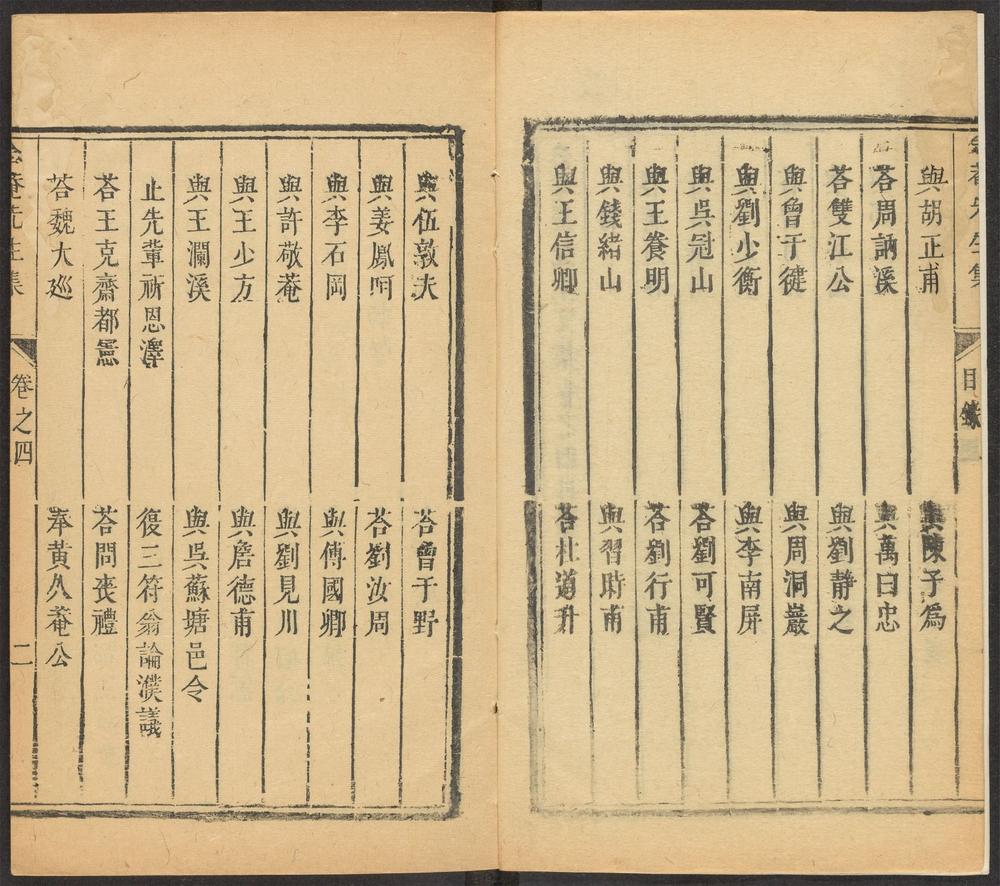 目錄
與胡正甫　與陳子爲
荅周訥溪　與萬曰忠
荅雙江公　與劉靜之
與曾于健　與周洞巖
與劉少衡　與李南屏
與吳冠山　荅劉可賢
與王養明　荅劉行甫
與錢緒山　與習時甫
與王信卿　荅杜道升
與伍敦夫　荅曾于野
與姜鳳阿　荅劉汝周
與李石岡　與傅國卿
與許敬菴　與劉見川
與王少方　與詹德甫
與王瀾溪　與吳蘇塘邑令
止先輩祈恩澤　復三符翁論濮議
荅王克齋都憲　荅問喪禮
荅魏大巡　奉黃久菴公
菴先生集　卷之四　二